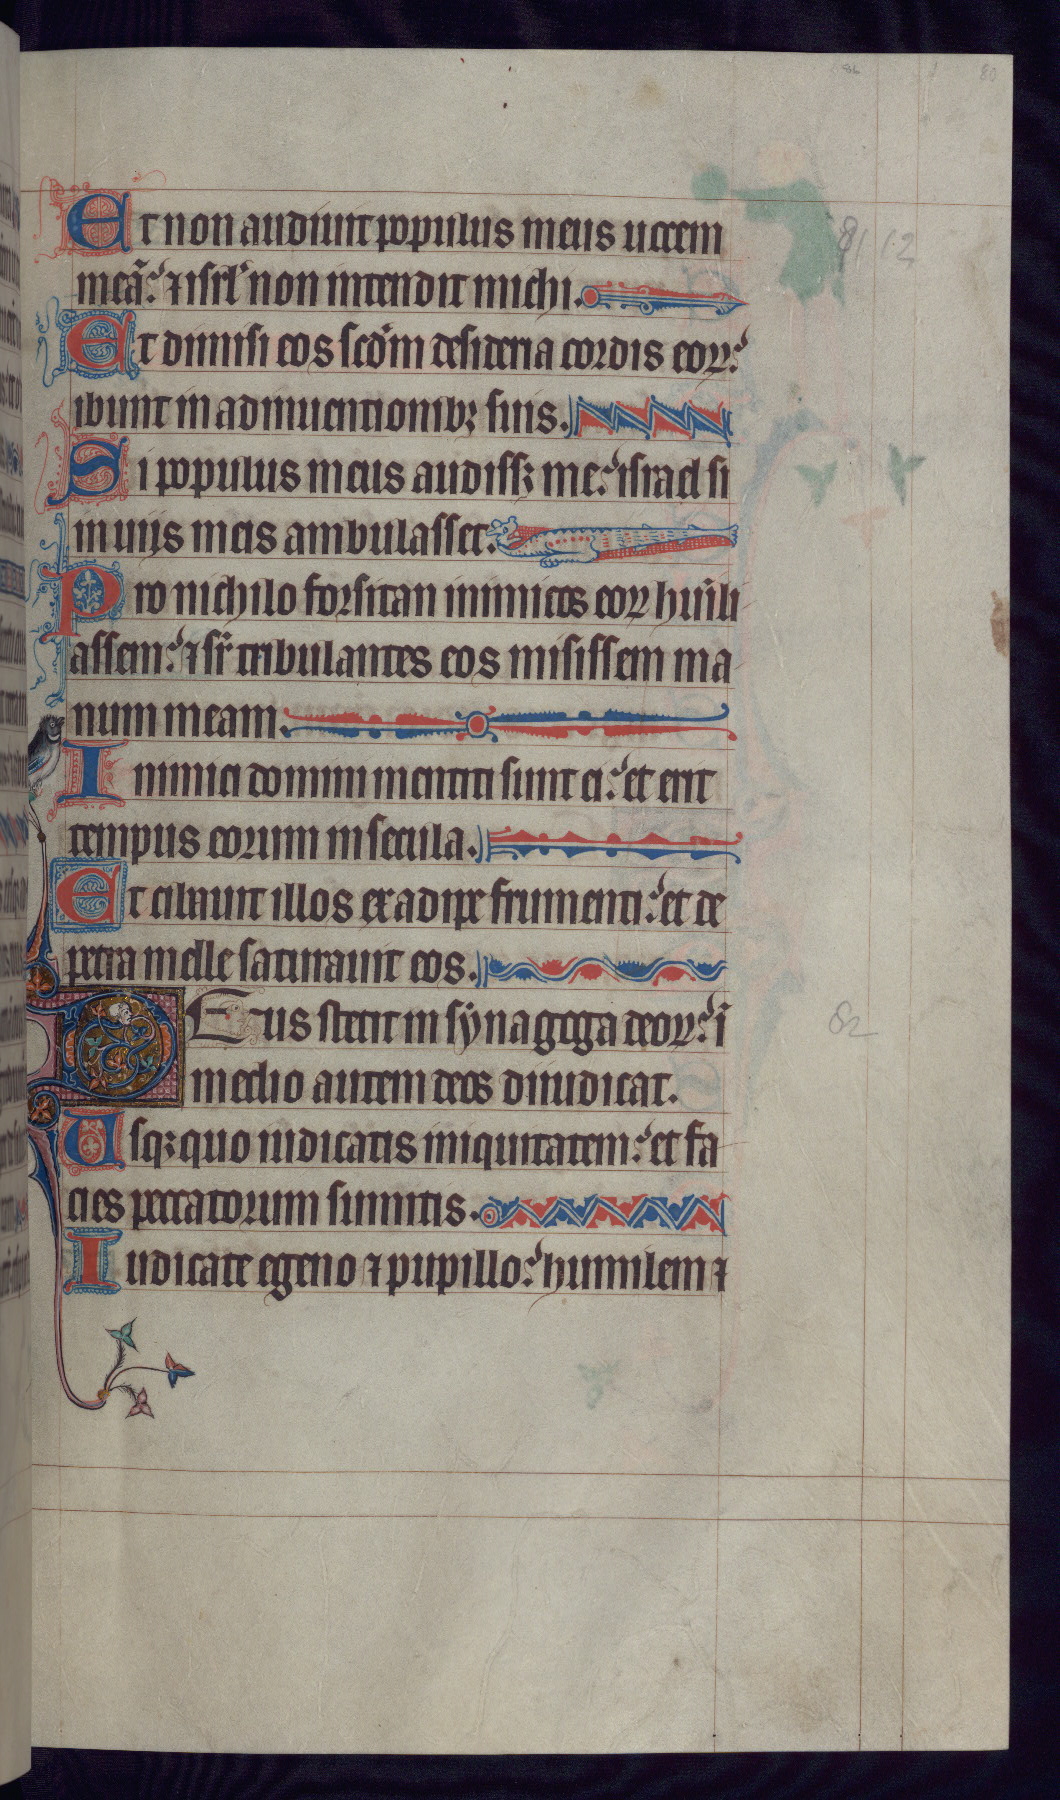 Et non audiuit populus meus uocem
meā: ⁊ isrl' non intendit michi.
Et dimisi eos scd̄m desideria cordis eoꝝ:
ibunt in adinuentionibꝫ suis.
Si populus meus audissꝫ me: israel si
in uijs meis ambulasset.
Pro nichilo forsitan inimicos eoꝝ hūili
assem: ⁊ sr̄ tribulantes eos misissem ma
num meam.
Inimici domini mentiti sunt ei: et erit
tempus eorum in secula.
Et cibauit illos ex adipe frumenti: et de
petra melle saturauit eos.
DEus stetit in synagoga deoꝝ: ī
medio autem deos diiudicat.
Usqꝫ quo iudicatis iniquitatem: et fa
cies peccatorum sumitis.
Iudicate egeno ⁊ pupillo: humilem ⁊
80
81 12
82